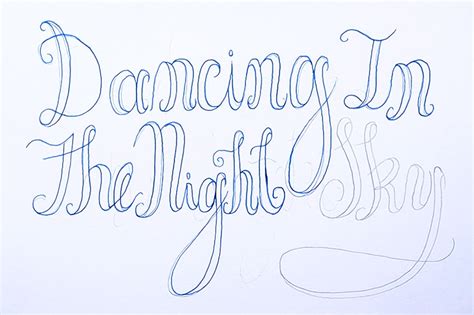 Dancing In
The Night Sky